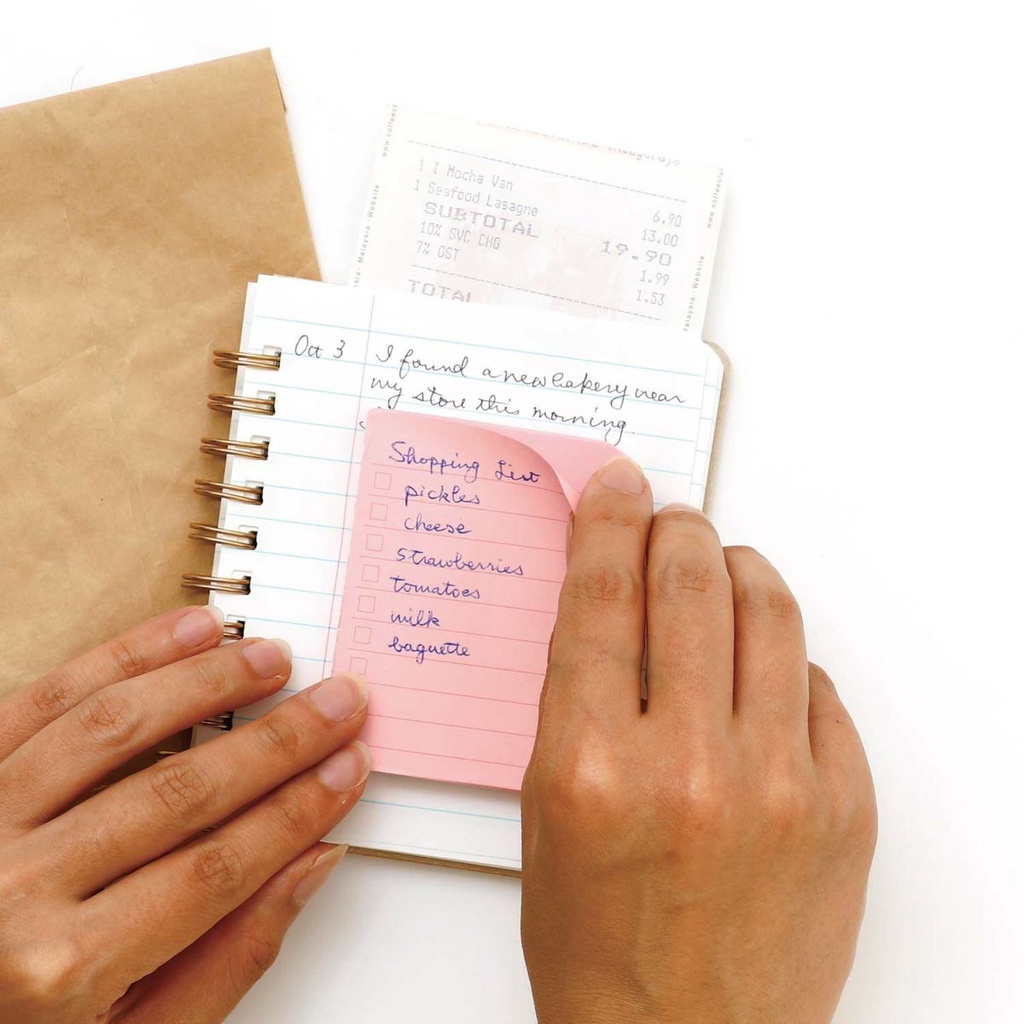 1 7 Mocha Van 6.90
1 Seafood Lasagne 13.00
SUBTOTAL 19.90
10% SVC CHG 1.99
7% GST 1.53
TOTAL
Malaysia · Website
www.coffeeclu
Oct 3 I found a new bakery near
my store this morning.
Shopping List
pickles
cheese
strawberries
tomatoes
milk
baguette